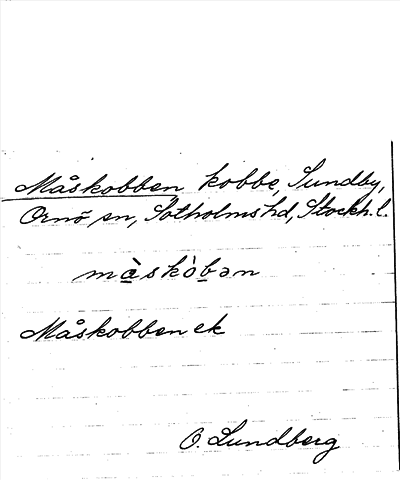 Måskobben kobbe, Sundby,
Ornö sn, Sotholms hd, Stockh. l.
màskòbən
Måskobben ek
O. Lundberg